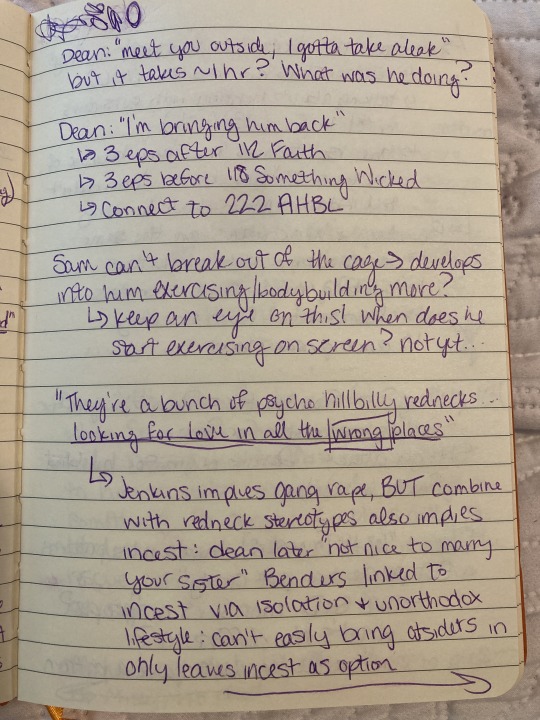 Dean: "meet you outside, I gotta take a leak"
but it takes ~1hr? What was he doing?
Dean: "I'm bringing him back"
↳ 3 eps after 112 Faith
↳ 3 eps before 118 Something Wicked
↳ Connect to 222 AHBL
Sam can't break out of the cage → develops
into him exercising/bodybuilding more?
↳ keep an eye on this! When does he
start exercising on screen? not yt...
"They're a bunch of psycho hillbilly rednecks...
looking for love in all the wrong places"
↳ Jenkins implies gang rape, BUT combine
with redneck stereotypes also implies
incest: dean later "not nice to marry
your sister" Benders linked to
incest via isolation + unorthodox
lifestyle: can't easily bring otsiders in
only leaves incest as option